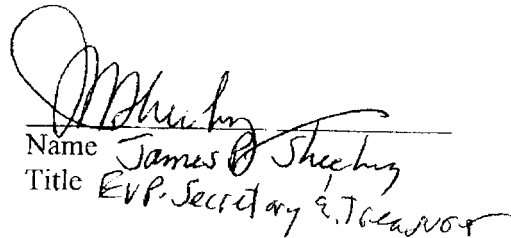 Name James P Sheehy
Title EVP. Secretary & Treasurer